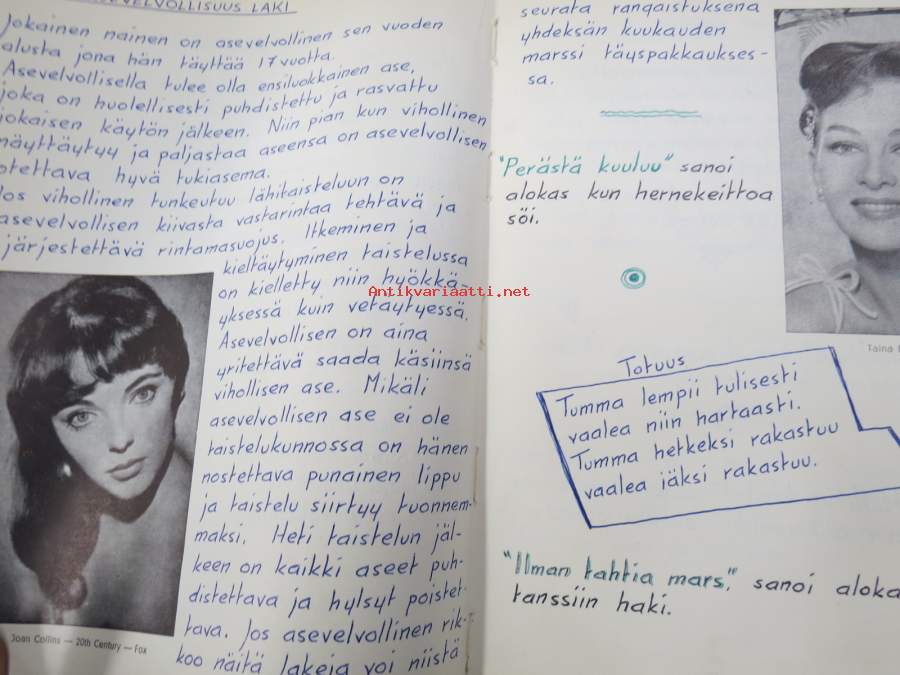 ASEVELVOLLISUUS LAKI
Jokainen nainen on asevelvollinen sen vuoden
alusta jona hän täyttää 17 vuotta.
Asevelvollisella tulee olla ensiluokkainen ase,
joka on huolellisesti puhdistettu ja rasvattu
jokaisen käytön jälkeen. Niin pian kun vihollinen
näyttäytyy ja paljastaa aseensa on asevelvollisen
otettava hyvä tukiasema.
Jos vihollinen tunkeutuu lähitaisteluun on
asevelvollisen kiivasta vastarintaa tehtävä ja
järjestettävä rintamasuojus. Itkeminen ja
kieltäytyminen taistelussa
on kielletty niin hyökkä-
yksessä kuin vetäytyessä.
Asevelvollisen on aina
yritettävä saada käsiinsä
vihollisen ase. Mikäli
asevelvollisen ase ei ole
taistelukunnossa on hänen
nostettava punainen lippu
ja taistelu siirtyy tuonnem-
maksi. Heti taistelun jäl-
keen on kaikki aseet puh-
distettava ja hylsyt poistet-
tava. Jos asevelvollinen rik-
koo näitä lakeja voi niistä
Joan Collins — 20th Century — Fox
seurata rangaistuksena
yhdeksän kuukauden
marssi täyspakkaukses-
sa.
"Perästä kuuluu" sanoi
alokas kun hernekeittoa
söi.
Antikvariaatti.net
Taina
Totuus
Tumma lempii tulisesti
vaalea niin hartaasti.
Tumma hetkeksi rakastuu
vaalea iäksi rakastuu.
"Ilman tahtia mars", sanoi aloka
tanssiin haki.